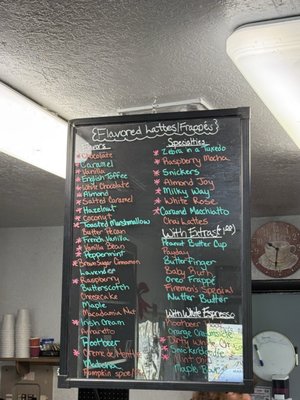 Flavored Lattes/Frappés
Chocolate
Caramel
Vanilla
English Toffee
White Chocolate
Almond
Salted Caramel
Hazelnut
Coconut
Toasted Marshmallow
Butter Pecan
French Vanilla
Vanilla Bean
Peppermint
Brown Sugar Cinnamon
Lavender
Raspberry
Butterscotch
Cheesecake
Maple
Macadamia Nut
Irish Cream
Amaretto
Rootbeer
Creme de Menthe
Madeira
Pumpkin Spice
Specialties
Zebra in a Tuxedo
Raspberry Mocha
Snickers
Almond Joy
Milky Way
White Rose
Caramel Macchiatto
Chai Lattes
With Extras
Peanut Butter Cup
Payday
Butterfinger
Baby Ruth
Oreo Frappe
Firemen Special
Nutter Butter
With White Espresso
Rootbeer
Orange
Dirty White
Snickerdoodle
Maple